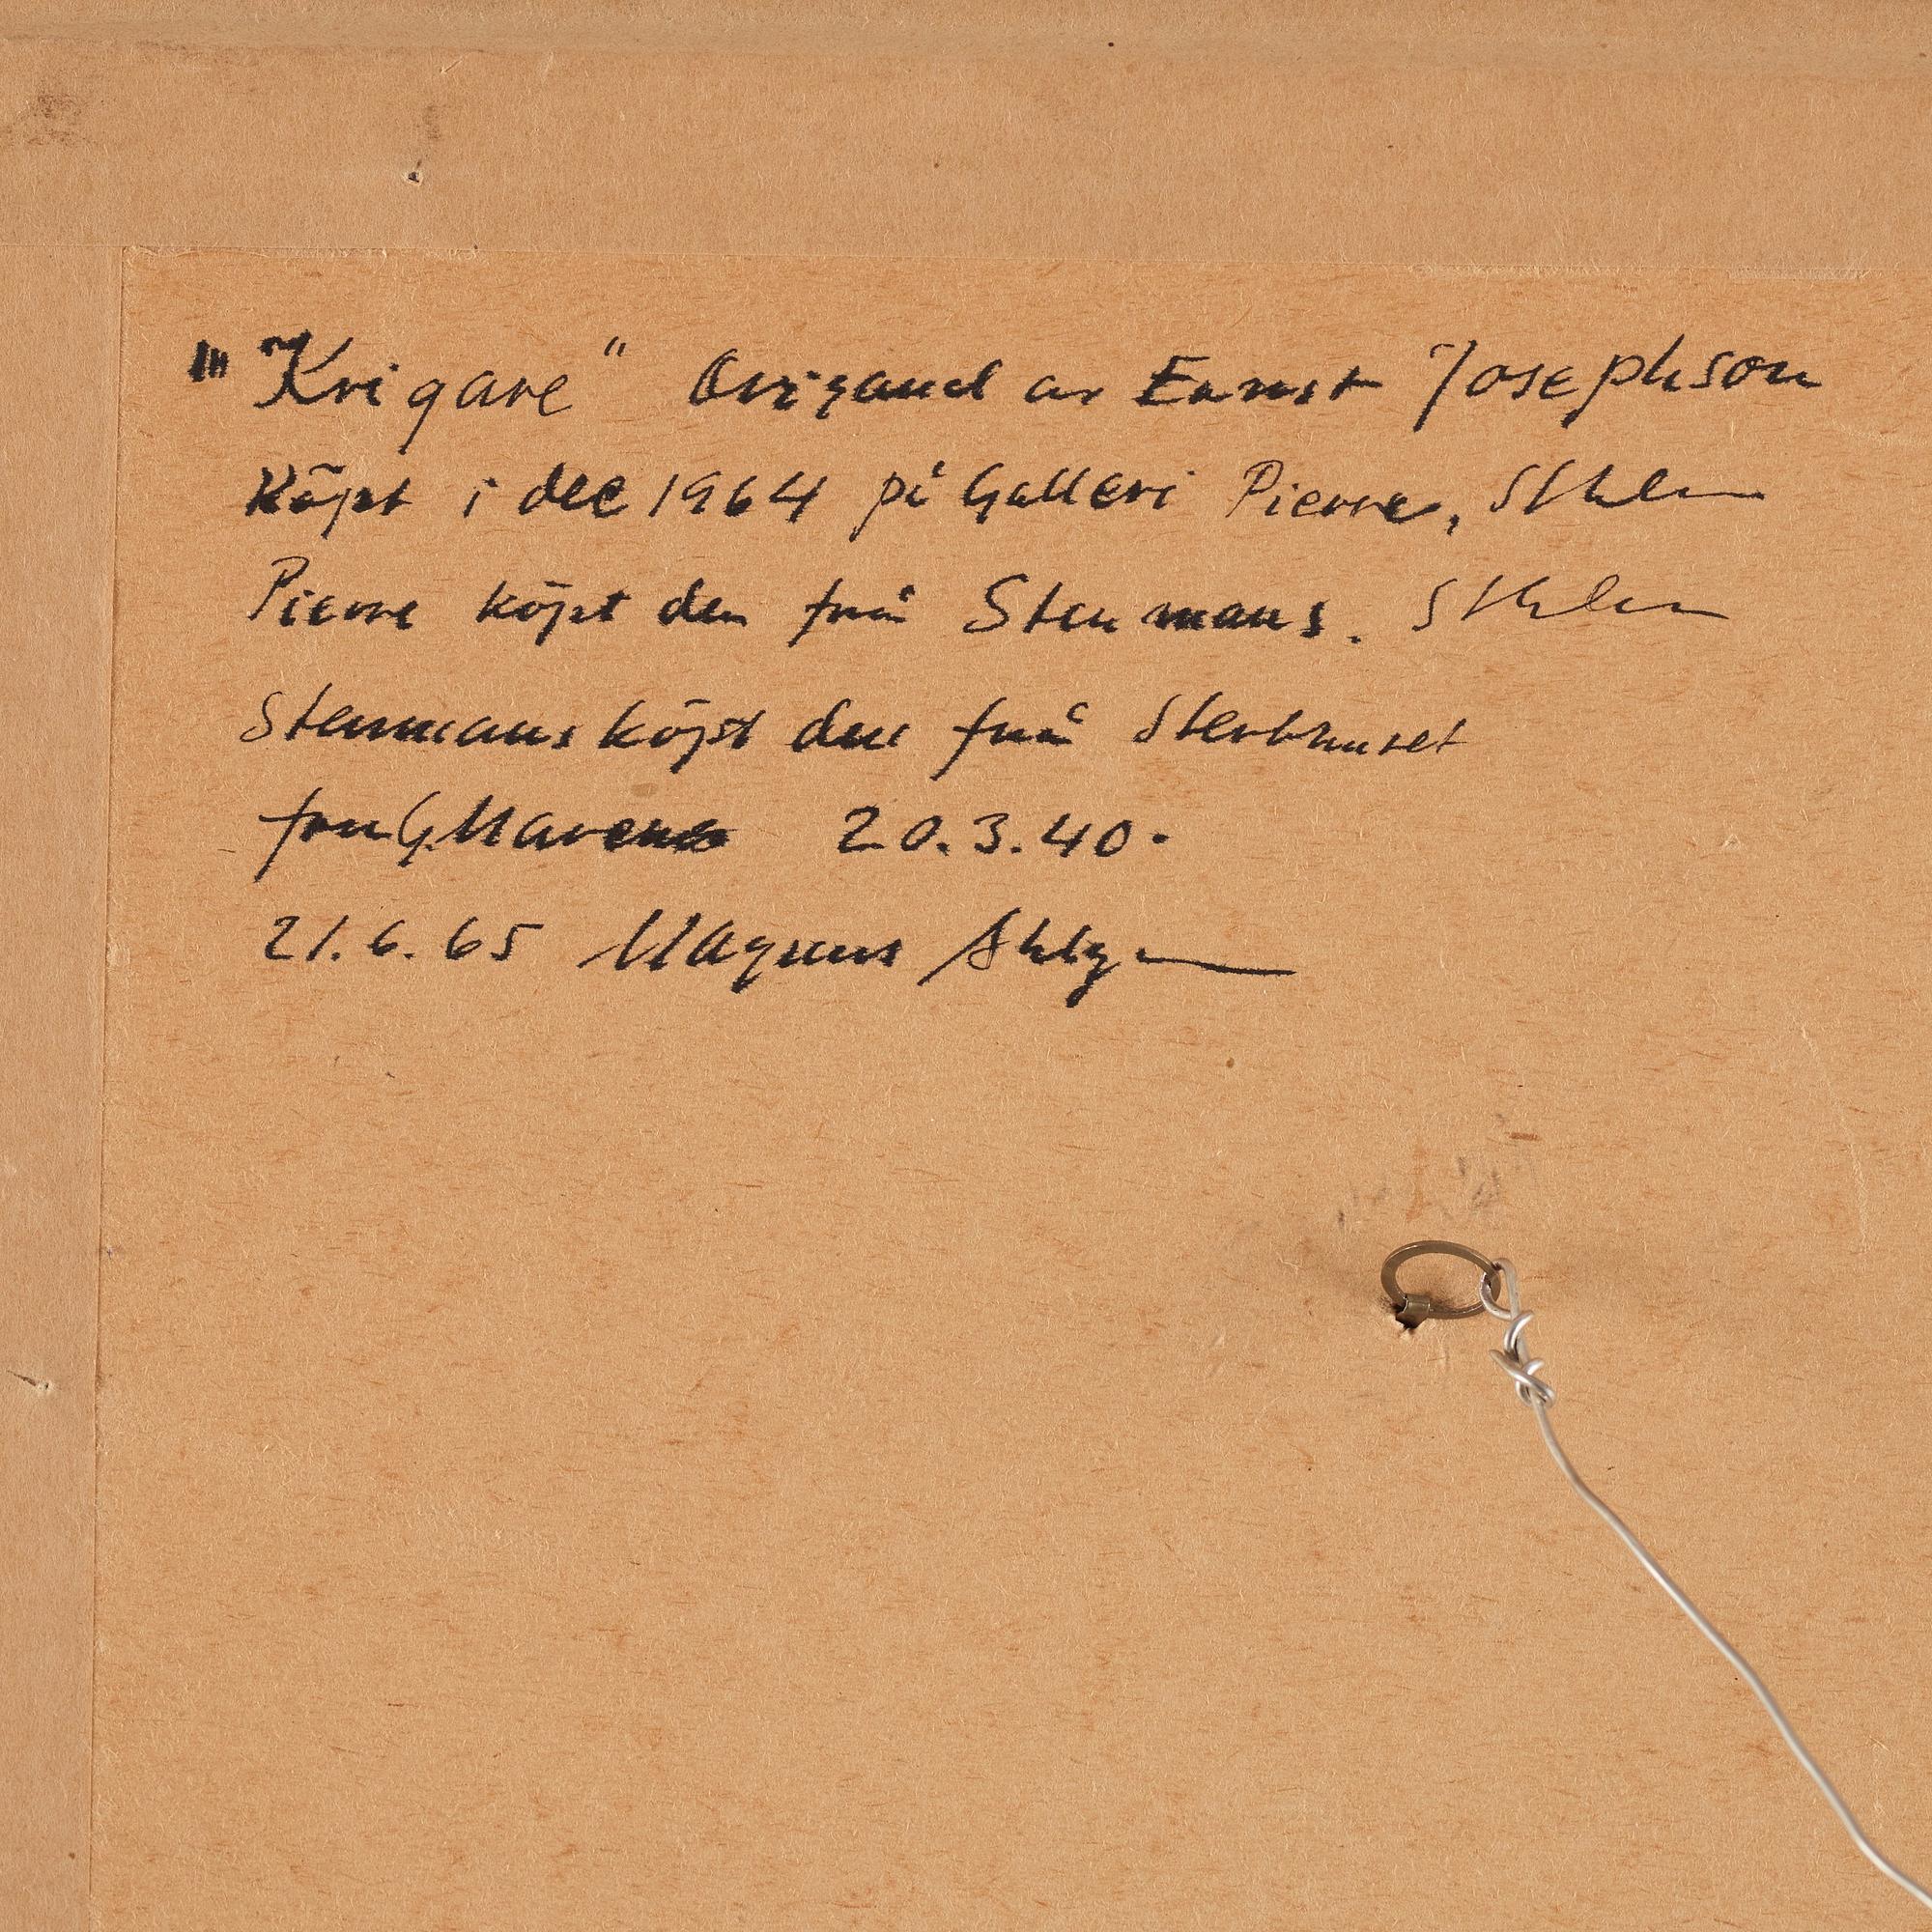 "Krigare" Original av Ernst Josephson
Köpt i dec 1964 på Galleri Pierre, Sthlm
Pierre köpt den från Stenmans. Sthlm
Stenmans köpt den från Sterbhuset
20.3.40.
21.6.65 Magnus